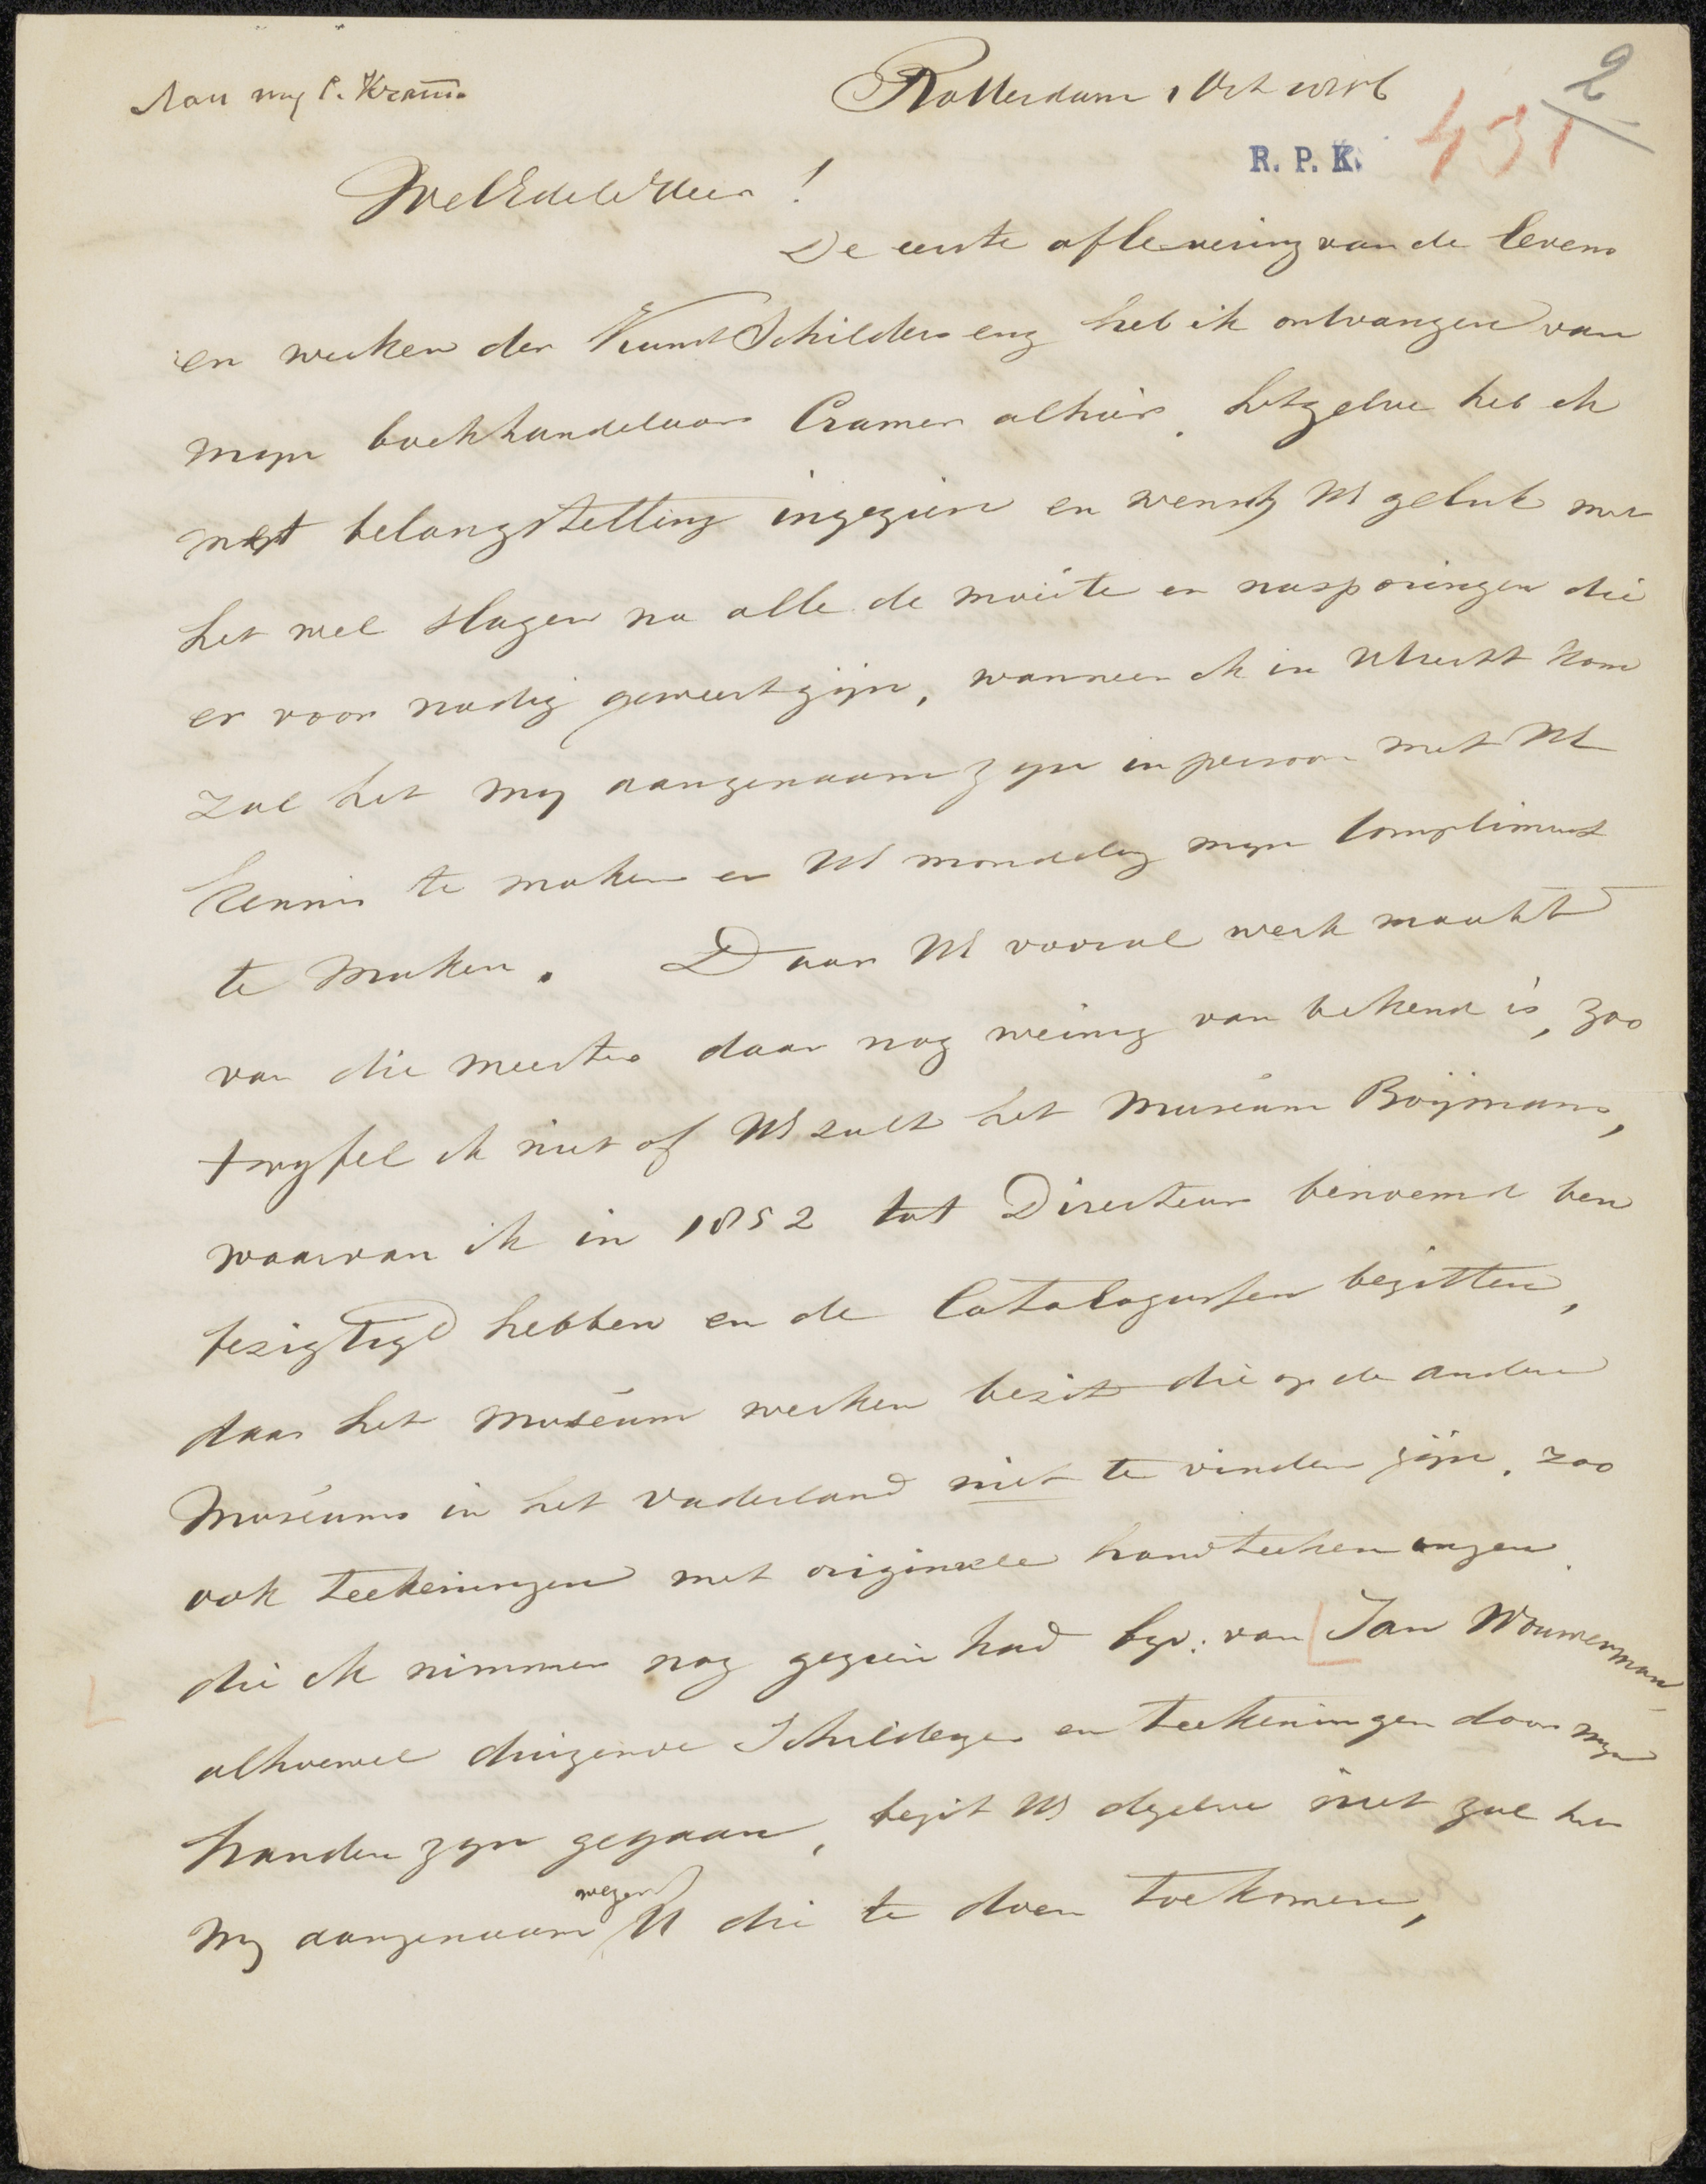 Aan my C. Kramm
Rotterdam 1 Oct 1856
2
R. P. K. 431
WelEdele Heer!
De eerste aflevering van de levens
en werken der Kunst Schilders enz heb ik ontvangen van
mijn boekhandelaar Cramer alhier. hetzelve heb ik
met belangstelling ingezien en wensch UE geluk met
het wel slagen na alle de moeite en nasporingen die
er voor nodig geweest zijn, wanneer ik in Utrecht kom
zal het my aangenaam zijn in persoon met UE
kennis te maken en UE mondeling mijn compliment
te maken. Daar UE vooral werk maakt
van die meesters daar nog weinig van bekend is, zoo
twyfel ik niet of UE zult het Museum Boijmans,
waarvan ik in 1852 tot Directeur benoemd ben
bezigtigd hebben en de Catalogussen bezitten,
daar het Muséum werken bezit die op de andere
Muséums in het vaderland niet te vinden zijn. zoo
ook teekeningen met originele handteekeningen
die ik nimmer nog gezien had byv: van Jan Wouwerman
alhoewel duizende Schilderyen en teekeningen door myn
handen zyn gegaan, bezit UE dezelve niet zal het
my aangenaam wezen U die te doen toekomen,